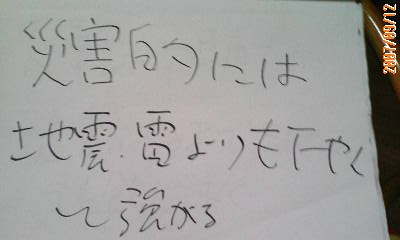 災害的には
地震・雷よりも下やく
して強がる
2007/09/12